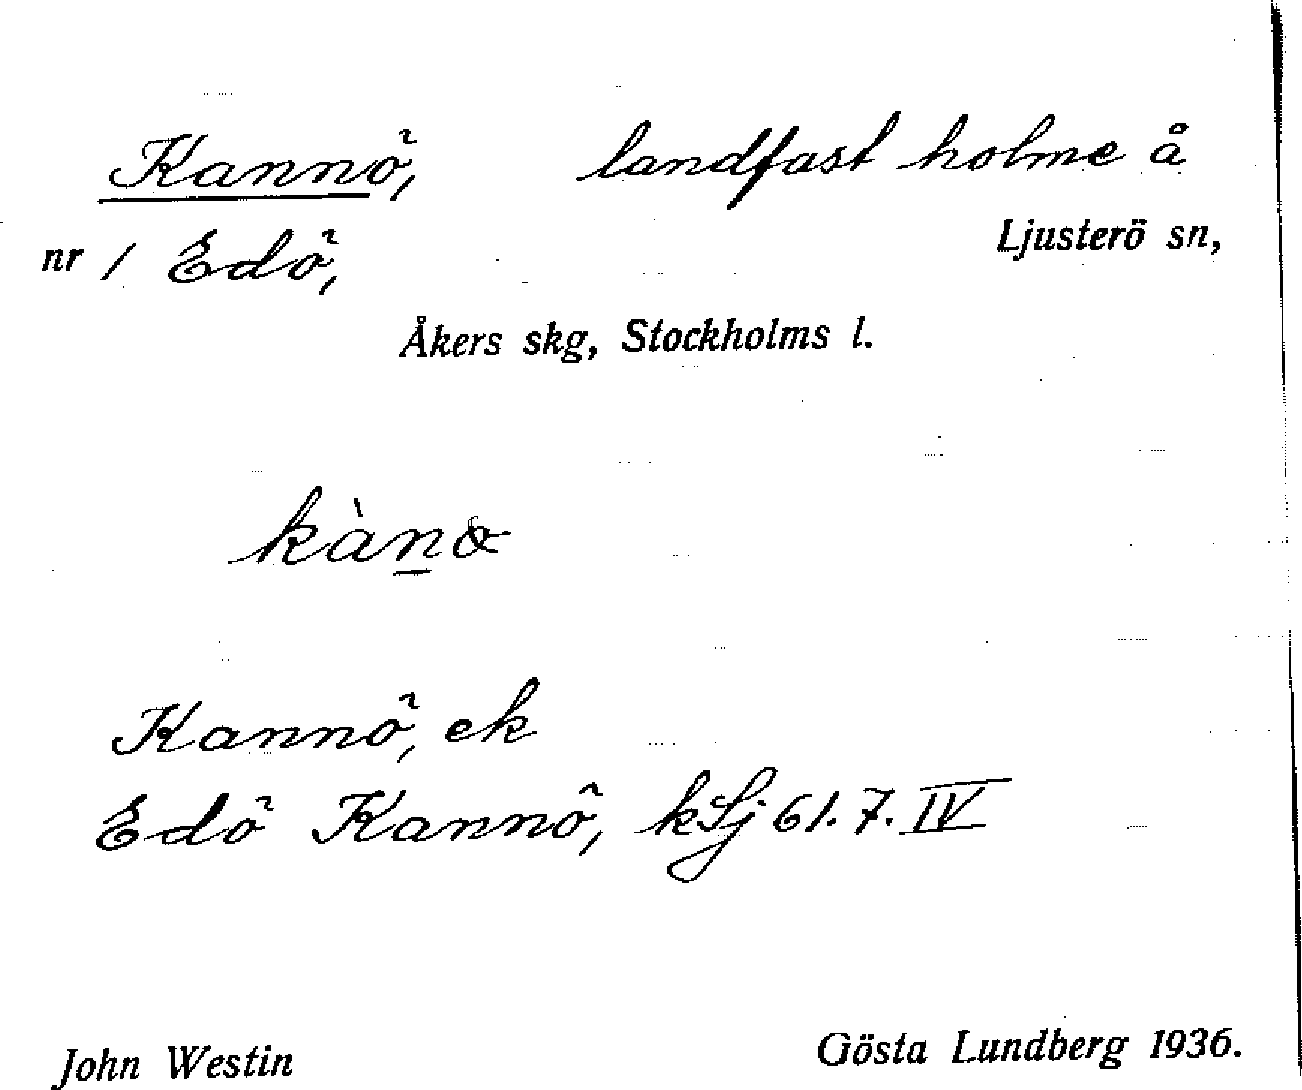 Kannö, landfast holme å
nr 1 Edö, Ljusterö sn,
Åkers skg, Stockholms l.
kàn̲ö
Kannö, ek
Edö Kannö, kLj 61.7.IV
John Westin Gösta Lundberg 1936.